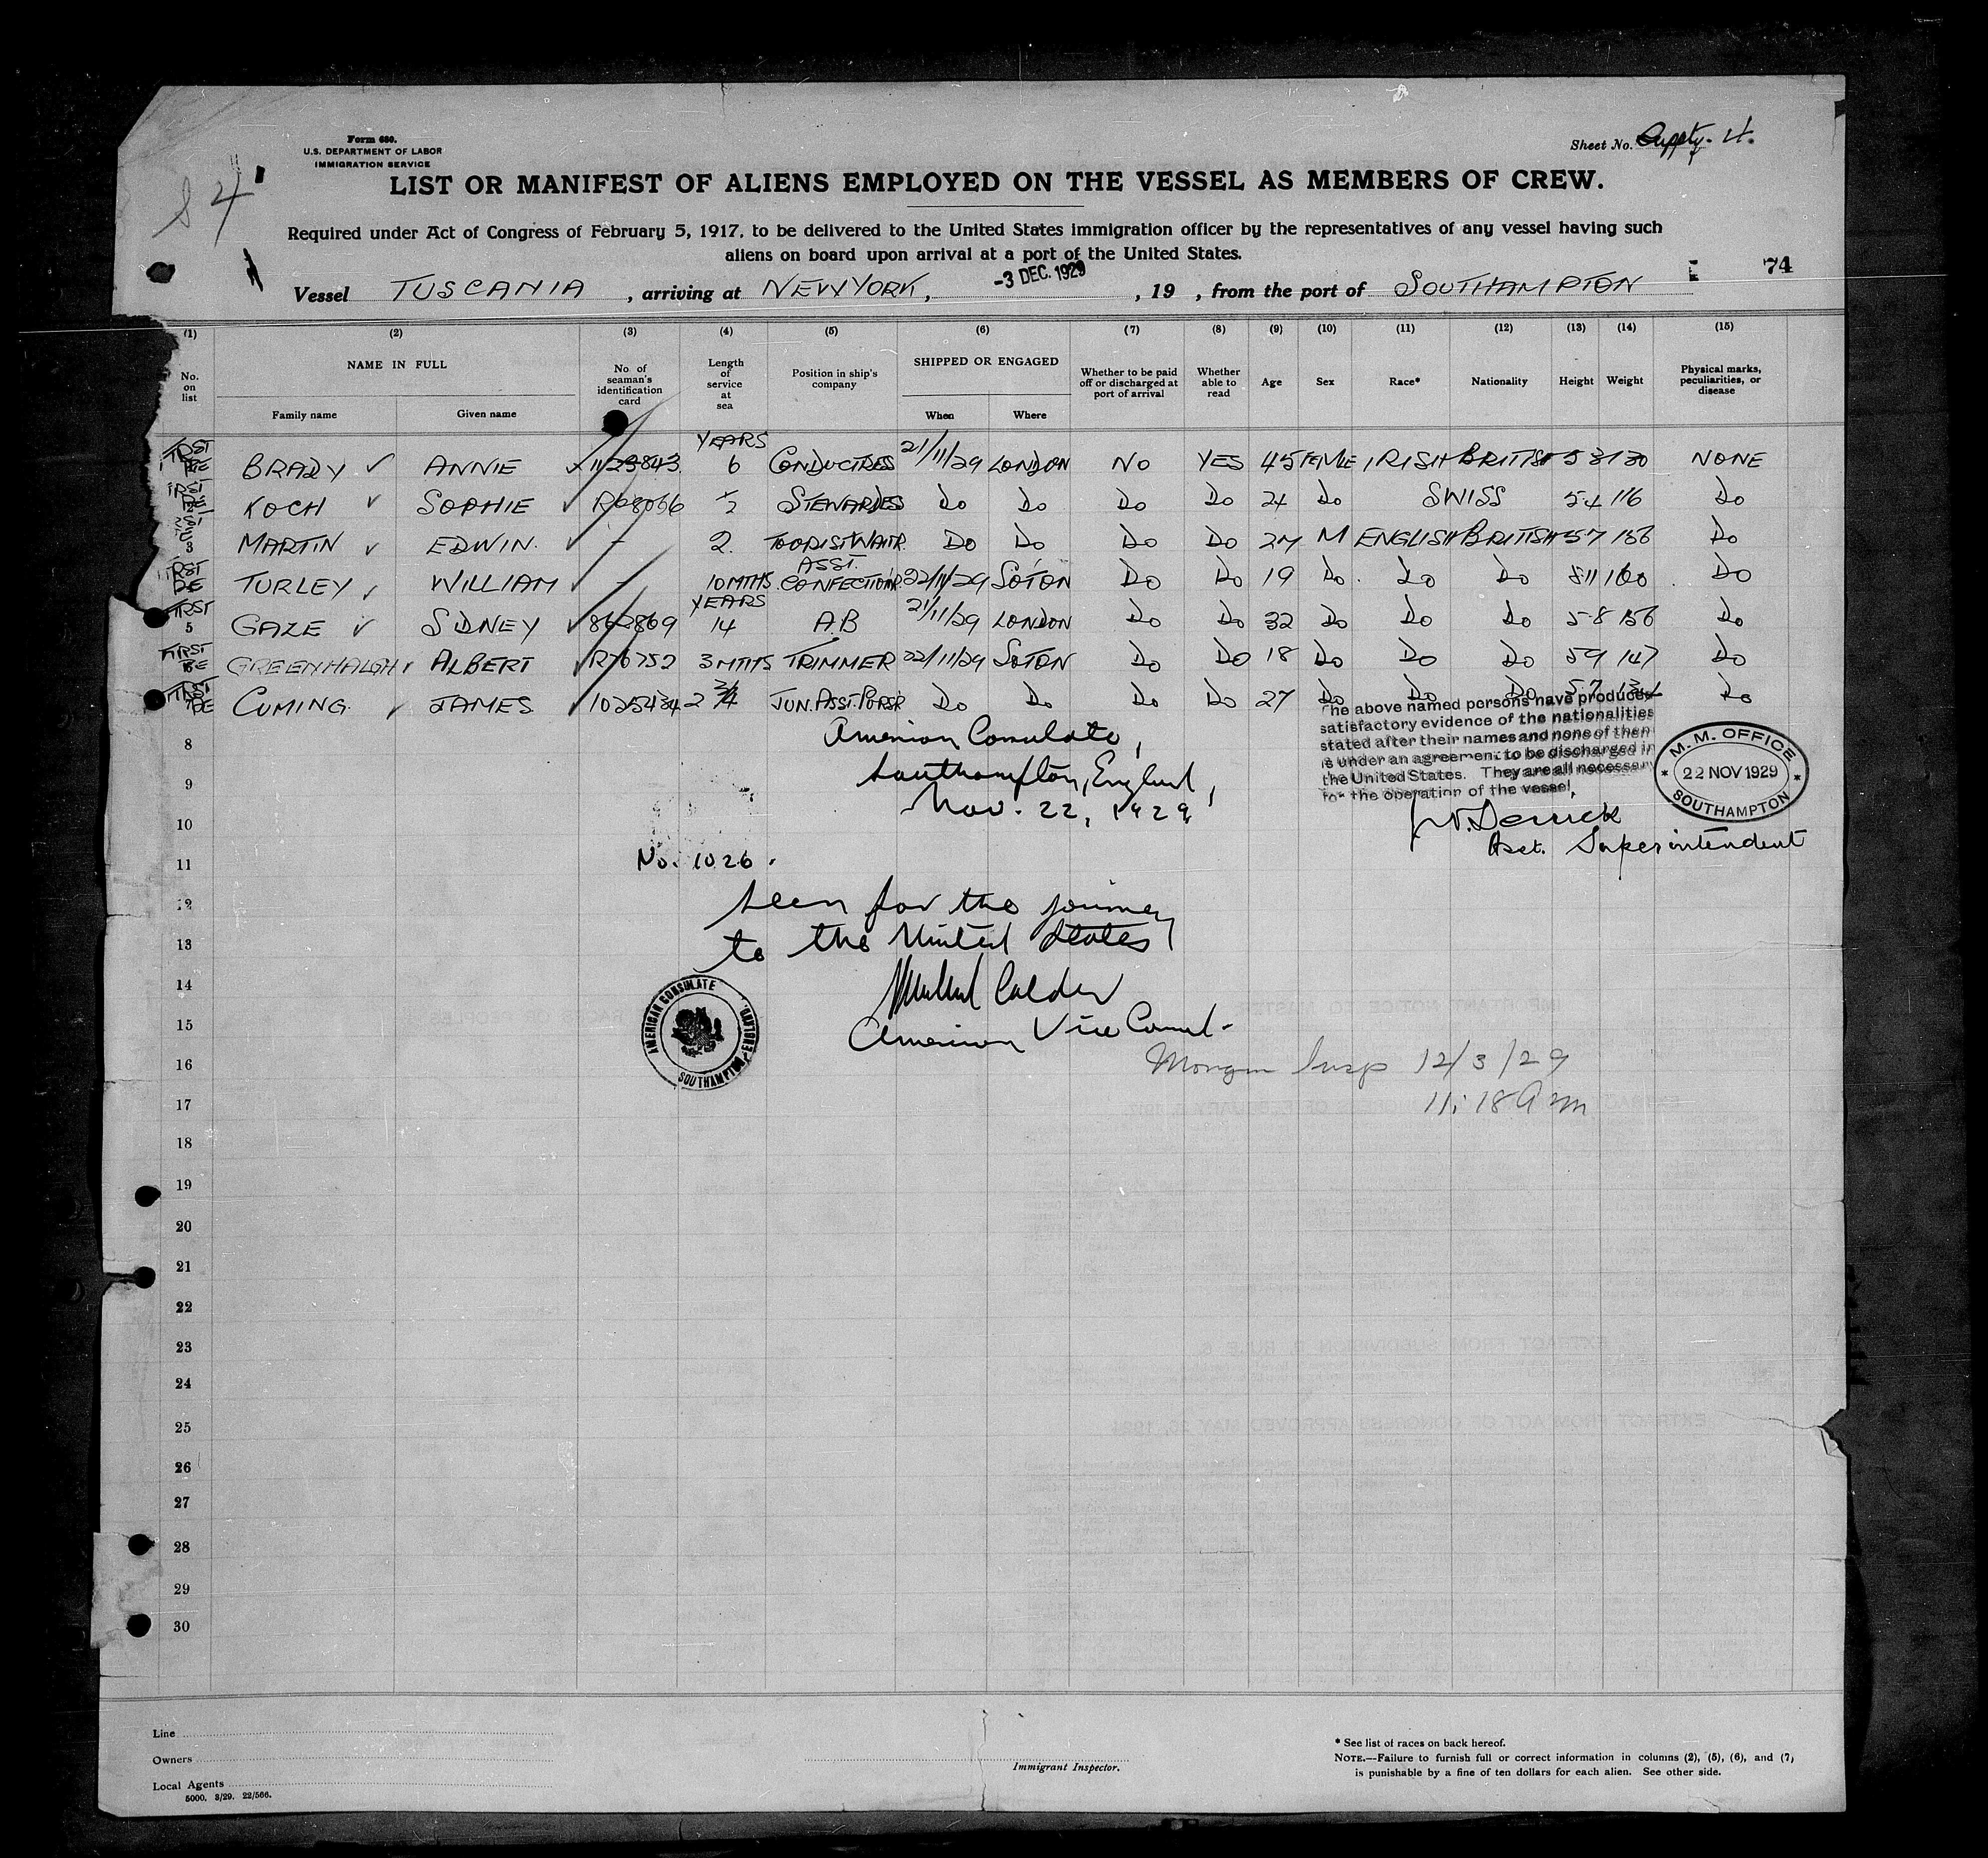 Form 680.
U.S. DEPARTMENT OF LABOR
IMMIGRATION SERVICE
Sheet No. 4.
84
LIST OR MANIFEST OF ALIENS EMPLOYED ON THE VESSEL AS MEMBERS OF CREW.
Required under Act of Congress of February 5, 1917, to be delivered to the United States immigration officer by the representatives of any vessel having such
aliens on board upon arrival at a port of the United States.
Vessel TUSCANIA , arriving at NEW YORK, -3 DEC. 1929 , 19 , from the port of SOUTHAMPTON
74
(1) (2) (3) (4) (5) (6) (7) (8) (9) (10) (11) (12) (13) (14) (15)
No. on list NAME IN FULL No. of seaman's identification card Length of service at sea Position in ship's company SHIPPED OR ENGAGED Whether to be paid off or discharged at port of arrival Whether able to read Age Sex Race* Nationality Height Weight Physical marks, peculiarities, or disease
Family name Given name When Where
FIRST BRADY ANNIE 1123843 YEARS 6 CONDUCTRESS 21/11/29 LONDON NO YES 45 FEMLE IRISH BRITISH 5 3 130 NONE
KOCH SOPHIE R68066 1/2 STEWARDES Do Do Do Do 24 Do SWISS 5-4 116 Do
3 MARTIN EDWIN. - 2. TOORIST WAITR. Do Do Do Do 27 M ENGLISH BRITISH 5 7 156 Do
TURLEY WILLIAM - 10 MTHS ASST. CONFECTIONR 22/11/29 SOTON Do Do 19 Do Do Do 160 Do
FIRST 5 GAZE SIDNEY 862869 YEARS 14 A.B 21/11/29 LONDON Do Do 32 Do Do Do 5-8 156 Do
FIRST GREENHALGH ALBERT R76752 3 MTHS TRIMMER 22/11/29 SOTON Do Do 18 Do Do Do 59 147 Do
FIRST CUMING JAMES 1025434 2 3/4 JUN. ASST. PURSR Do Do Do Do 27 Do Do Do 5-7 Do
The above named persons have produced
satisfactory evidence of the nationalities
stated after their names and none of them
is under an agreement to be discharged in
the United States. They are all necessary
for the operation of the vessel.
M.M. OFFICE
22 NOV 1929
SOUTHAMPTON
Derrick
Asst. Superintendent
American Consulate,
Southampton, England,
Nov. 22, 1929
No. 1026.
Seen for the journey
to the United States
Calder
American Vice Consul.
AMERICAN CONSULATE
SOUTHAMPTON, ENGLAND.
Insp 12/3/29
11:18 am
8
9
10
11
12
13
14
15
16
17
18
19
20
21
22
23
24
25
26
27
28
29
30
Line
Owners
Local Agents
5000. 8/29. 22/566.
Immigrant Inspector.
* See list of races on back hereof.
NOTE.—Failure to furnish full or correct information in columns (2), (5), (6), and (7,
is punishable by a fine of ten dollars for each alien. See other side.